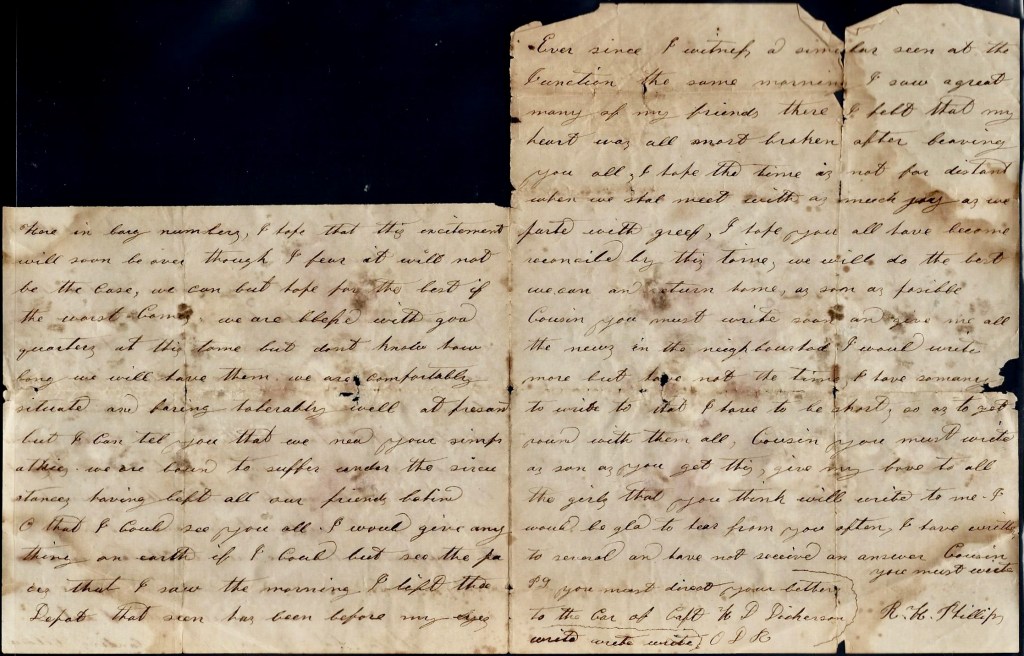 Here in larg numbers, I hope that this excitement
will soon be over though I fear it will not
be the case, we can but hope for the best if
the worst comes. we are blesse with good
quarters at this tome but dont know how
long we will have them. we are comfortably
situate and faring tolerably well at presant
but I can tel you that we ned your simp
athies. we are boun to suffer under the sircu
stances having left all our friends behind
O that I could see you all. I would give any
thing on earth if I could but see the fa
ces that I saw the morning I left the
Depot that seen has been before my eyes
Ever since I witness a similar seen at the
Junction the same morning I saw a great
many of my friends there I felt that my
heart was all most broken after leaving
you all, I hope the time is not far distant
when we shal meet with as much joy as we
parte with greef, I hope you all have become
reconcile by this tome, we will do the best
we can an return home, as son as posible
Cousin you must write soon an give me all
the news in the neighbourhod I would write
more but have not the time I have so many
to write to that I have to be short, so as to get
round with them all, Cousin you must write
as son as you get this, give my love to all
the girls that you think will write to me. I
would be gla to hear from you often, I have writte
to several an have not receive an answer Cousin
you must write
PS you must direct your letters
to the Car of Capt K D Dickerson
R. H. Phillips
write write write